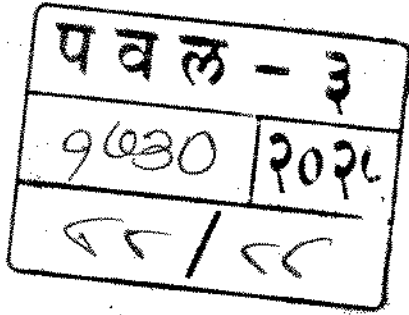 पवल - ३
१७३० २०२५
८८ / ८८